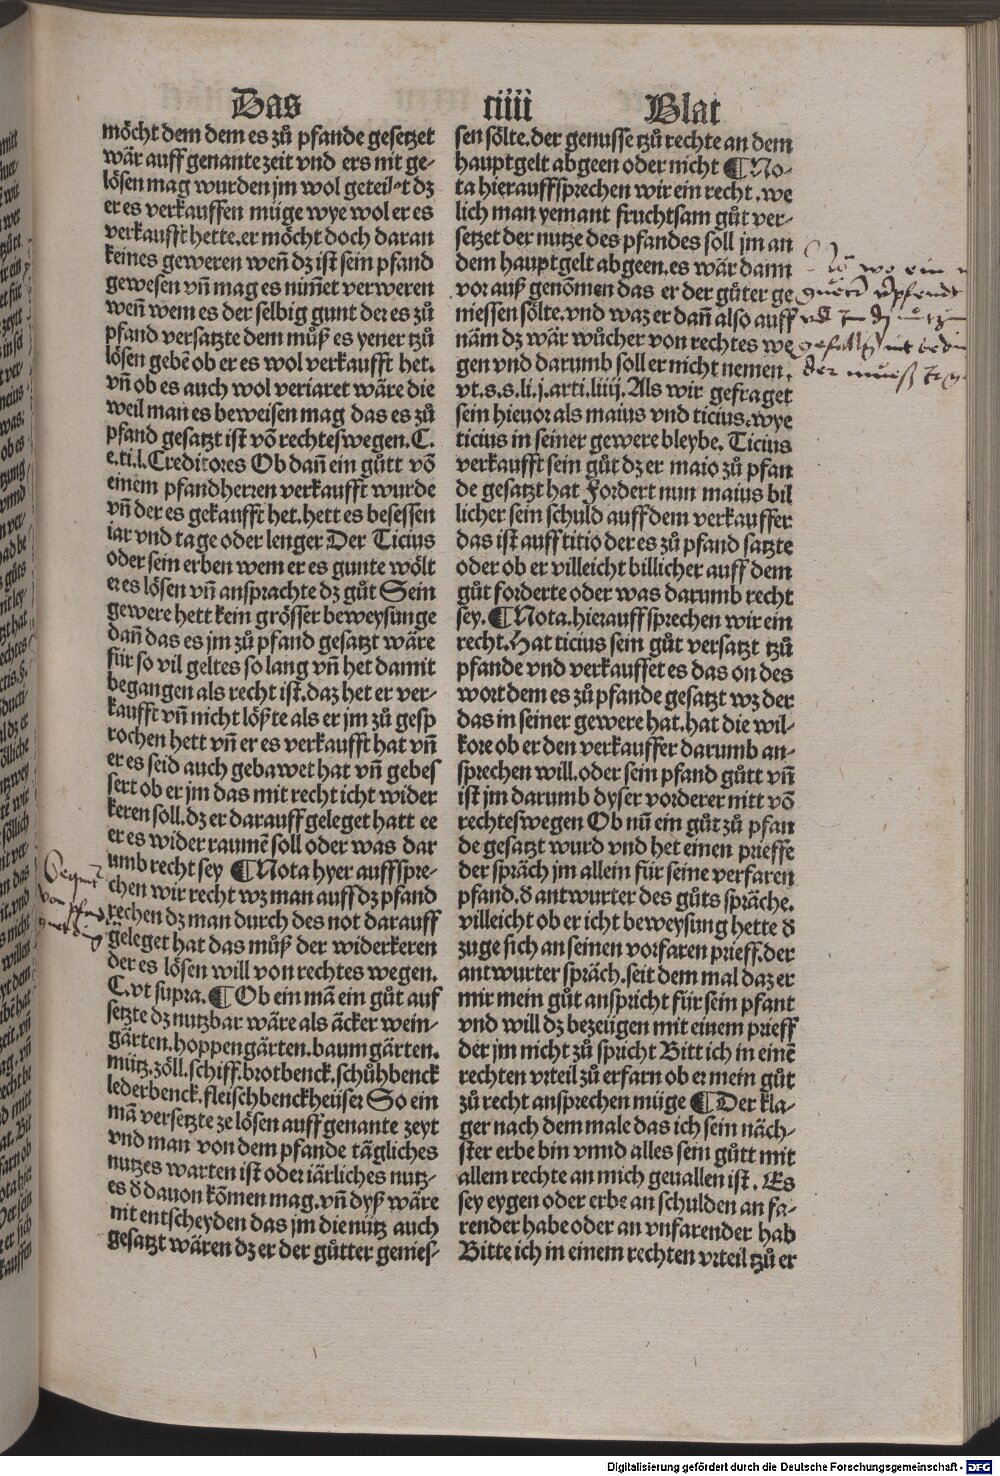 Das riiii Blat
möcht dem dem es zů pfande gesetzet
wär auff genante zeit vnd ers nit ge-
lösen mag wurden jm wol geteilt dz
er es verkauffen müge wye wol er es
verkaufft hette.er möcht doch daran
keines geweren weñ dz ist sein pfand
gewesen vñ mag es nim̃et verweren
weñ wem es der selbig gunt der es zů
pfand versatzte dem můß es yener tzů
lösen gebẽ ob er es wol verkaufft het.
vñ ob es auch wol veriaret wäre die
weil man es beweisen mag das es zů
pfand gesatzt ist võ rechteswegen.C.
e.ti.l.Creditores Ob dañ ein gůtt võ
einem pfandherren verkaufft wurde
vñ der es gekaufft het.hett es besessen
iar vnd tage oder lenger Der Ticius
oder sein erben wem er es gunte wölt
er es lösen vñ ansprachte dz gůt Sein
gewere hett kein grösser beweysunge
dañ das es jm zů pfand gesatzt wäre
für so vil geltes so lang vñ het damit
begangen als recht ist.daz het er ver-
kaufft vñ nicht lößte als er jm zů gesp
rochen hett vñ er es verkaufft hat vñ
er es seid auch gebawet hat vñ gebes
sert ob er jm das mit recht icht wider
keren soll.dz er darauff geleget hatt ee
er es wider raumẽ soll oder was dar
umb recht sey ¶Nota hyer auffspre-
chen wir recht wz man auff dz pfand
rechen dz man durch des not darauff
geleget hat das můß der widerkeren
der es lösen will von rechtes wegen.
C.vt supra.¶Ob ein mã ein gůt auf
setzte dz nutzbar wäre als äcker wein-
gärten.hoppengärten.baumgärten.
mütz.zöll.schiff.brotbenck.schůhbenck
lederbenck.fleischbenckheüser So ein
mã versetzte ze lösen auff genante zeyt
vnd man von dem pfande tägliches
nutzes warten ist oder iärliches nutz-
es ð dauon kõmen mag.vñ dyß wäre
nit entscheyden das jm die nütz auch
gesatzt wären dz er der gůtter genies-
sen sölte.der genusse tzů rechte an dem
hauptgelt abgeen oder nicht ¶No-
ta hierauffsprechen wir ein recht.we
lich man yemant fruchtsam gůt ver-
setzet der nutze des pfandes soll jm an
dem hauptgelt abgeen.es wär dann
vor auß genõmen das er der gůter ge
niessen sölte.vnd waz er dañ also auff
näm dz wär wůcher von rechtes we
gen vnd darumb soll er nicht nemen.
vt.s.s.li.j.arti.liiij.Als wir gefraget
sein hieuor als maius vnd ticius.wye
ticius in seiner gewere bleybe. Ticius
verkaufft sein gůt dz er maio zů pfan
de gesatzt hat Fordert nun maius bil
licher sein schuld auff dem verkauffer
das ist auff titio der es zů pfand satzte
oder ob er villeicht billicher auff dem
gůt forderte oder was darumb recht
sey.¶Nota.hierauff sprechen wir ein
recht.Hat ticius sein gůt versatzt tzů
pfande vnd verkauffet es das on des
wort dem es zů pfande gesatzt wz der
das in seiner gewere hat.hat die wil-
kore ob er den verkauffer darumb an-
sprechen will.oder sein pfand gůtt vñ
ist jm darumb dyser vorderer nitt võ
rechteswegen Ob nũ ein gůt zů pfan
de gesatzt wurd vnd het einen prieffe
der spräch jm allein für seine verfaren
pfand.ð antwurter des gůts spräche.
villeicht ob er icht beweysung hette ð
zuge sich an seinen vorfaren prieff.der
antwurter spräch.seit dem mal daz er
mir mein gůt anspricht für sein pfant
vnd will dz bezeügen mit einem prieff
der jm nicht zů spricht Bitt ich in einẽ
rechten vrteil zů erfarn ob er mein gůt
zů recht ansprechen müge ¶Der kla-
ger nach dem male das ich sein näch-
ster erbe bin vnnd alles sein gůtt mit
allem rechte an mich geuallen ist. Es
sey eygen oder erbe an schulden an fa-
render habe oder an vnfarender hab
Bitte ich in einem rechten vrteil tzů er
Digitalisierung gefördert durch die Deutsche Forschungsgemeinschaft - DFG